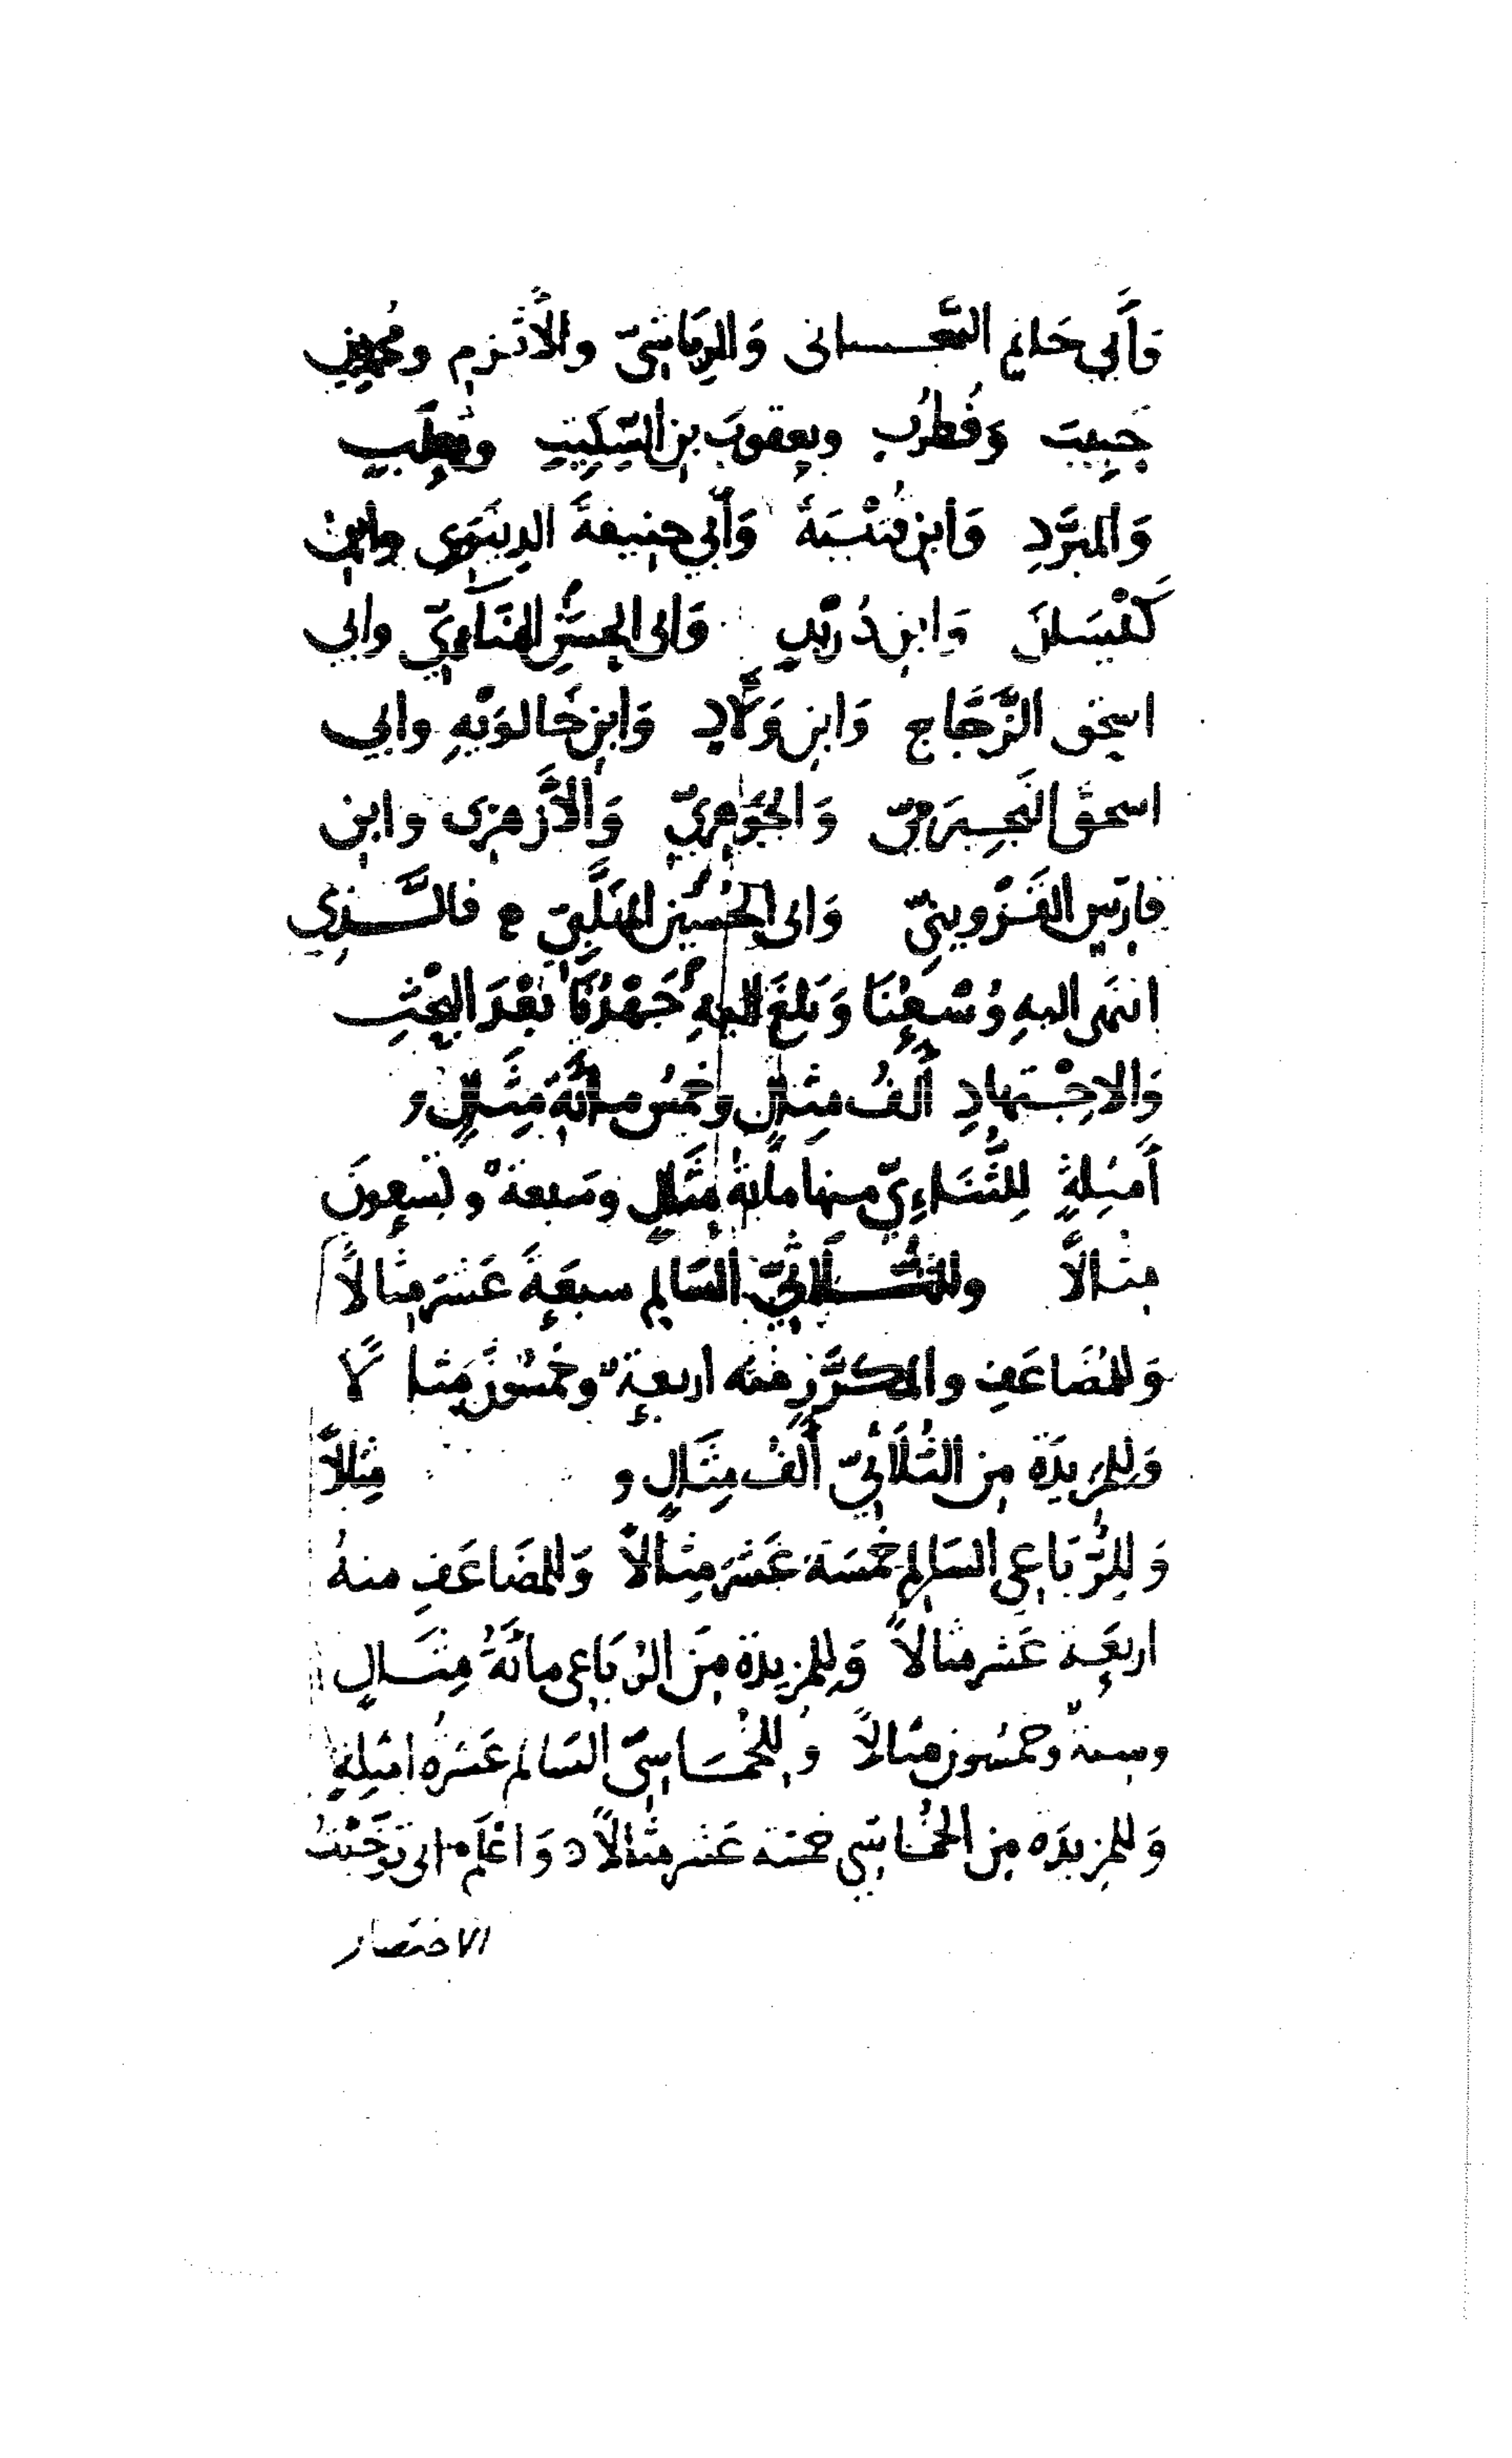 وَأَبي حَاتم السّجستانى وَالرِيَاشيّ والأَثرَم ومُحمّدِبنِ
حَبيبَ وَقُطرُبٍ ويعقوبَ بنِ السِّكِّيتِ وثَعلَبٍ
وَالمبَرَّدِ وَابنِ قُتَيْبَةَ وَأَبي حنِيفةَ الدِينَوَرِي وابن
كَيْسَانَ وَابنِ دُرَيْدٍ وَأبى الحسَنِ الهُنَآءِيّ وابي
اسحٰق الزَّجَّاج وَابنِ وَلَّادٍ وَابنِ خَالوَيْهِ وابي
اسحٰق النَّجِيرَمِيّ وَالجَوهَرِيّ وَالأَزهَرِى وابنِ
فارسِ القَزْوِينيّ وَابى الحُسَيْنِ المُهَلَّبِيّ ه فالَّــذِي
انتهَى اليهِ وُسْعُنَا وَبَلغَ اليهِ جَهْدُنَا بَعْدَ البَحْثِ
وَالاجْتِهادِ أَلفُ مِثالٍ وخمسُ مائَة مِثَالٍ و
أَمثِلةٍ لِلثُّنَاءِيّ منها مائةُ مِثَالٍ وسَبعةٌ وتسعِونَ
مِثالاً وللثُّــلاثيّ السَّالِم سبعَةَ عَشرَ مِثالاً
وَللمُضَاعَفِ والمكرَّرِ منه اربعةٌ وخمسُونَ مِثالًا
وَللمزيدَة مِن الثُلَاثيّ أَلفُ مِثَالٍ و مِثالاً
وَلِلرُّبَاعِى السَالِم خَمسَة عَشَر مِثالاً وَللمضَاعَفِ منهُ
اربعَة عَشر مثالاً وَللمزيدَة مِنَ الرُبَاعِى مائَةُ مِثَالٍ
وستةٌ وخمسُون مثالاً وَللخُمَاسِيّ السَالم عَشرةُ امثِلةٍ
وَللمزيدَه مِن الخُمَاسِي خمسَة عَشر مثالاً د وَاعْلَم انى تَوَخَّيْتُ
الاختصار